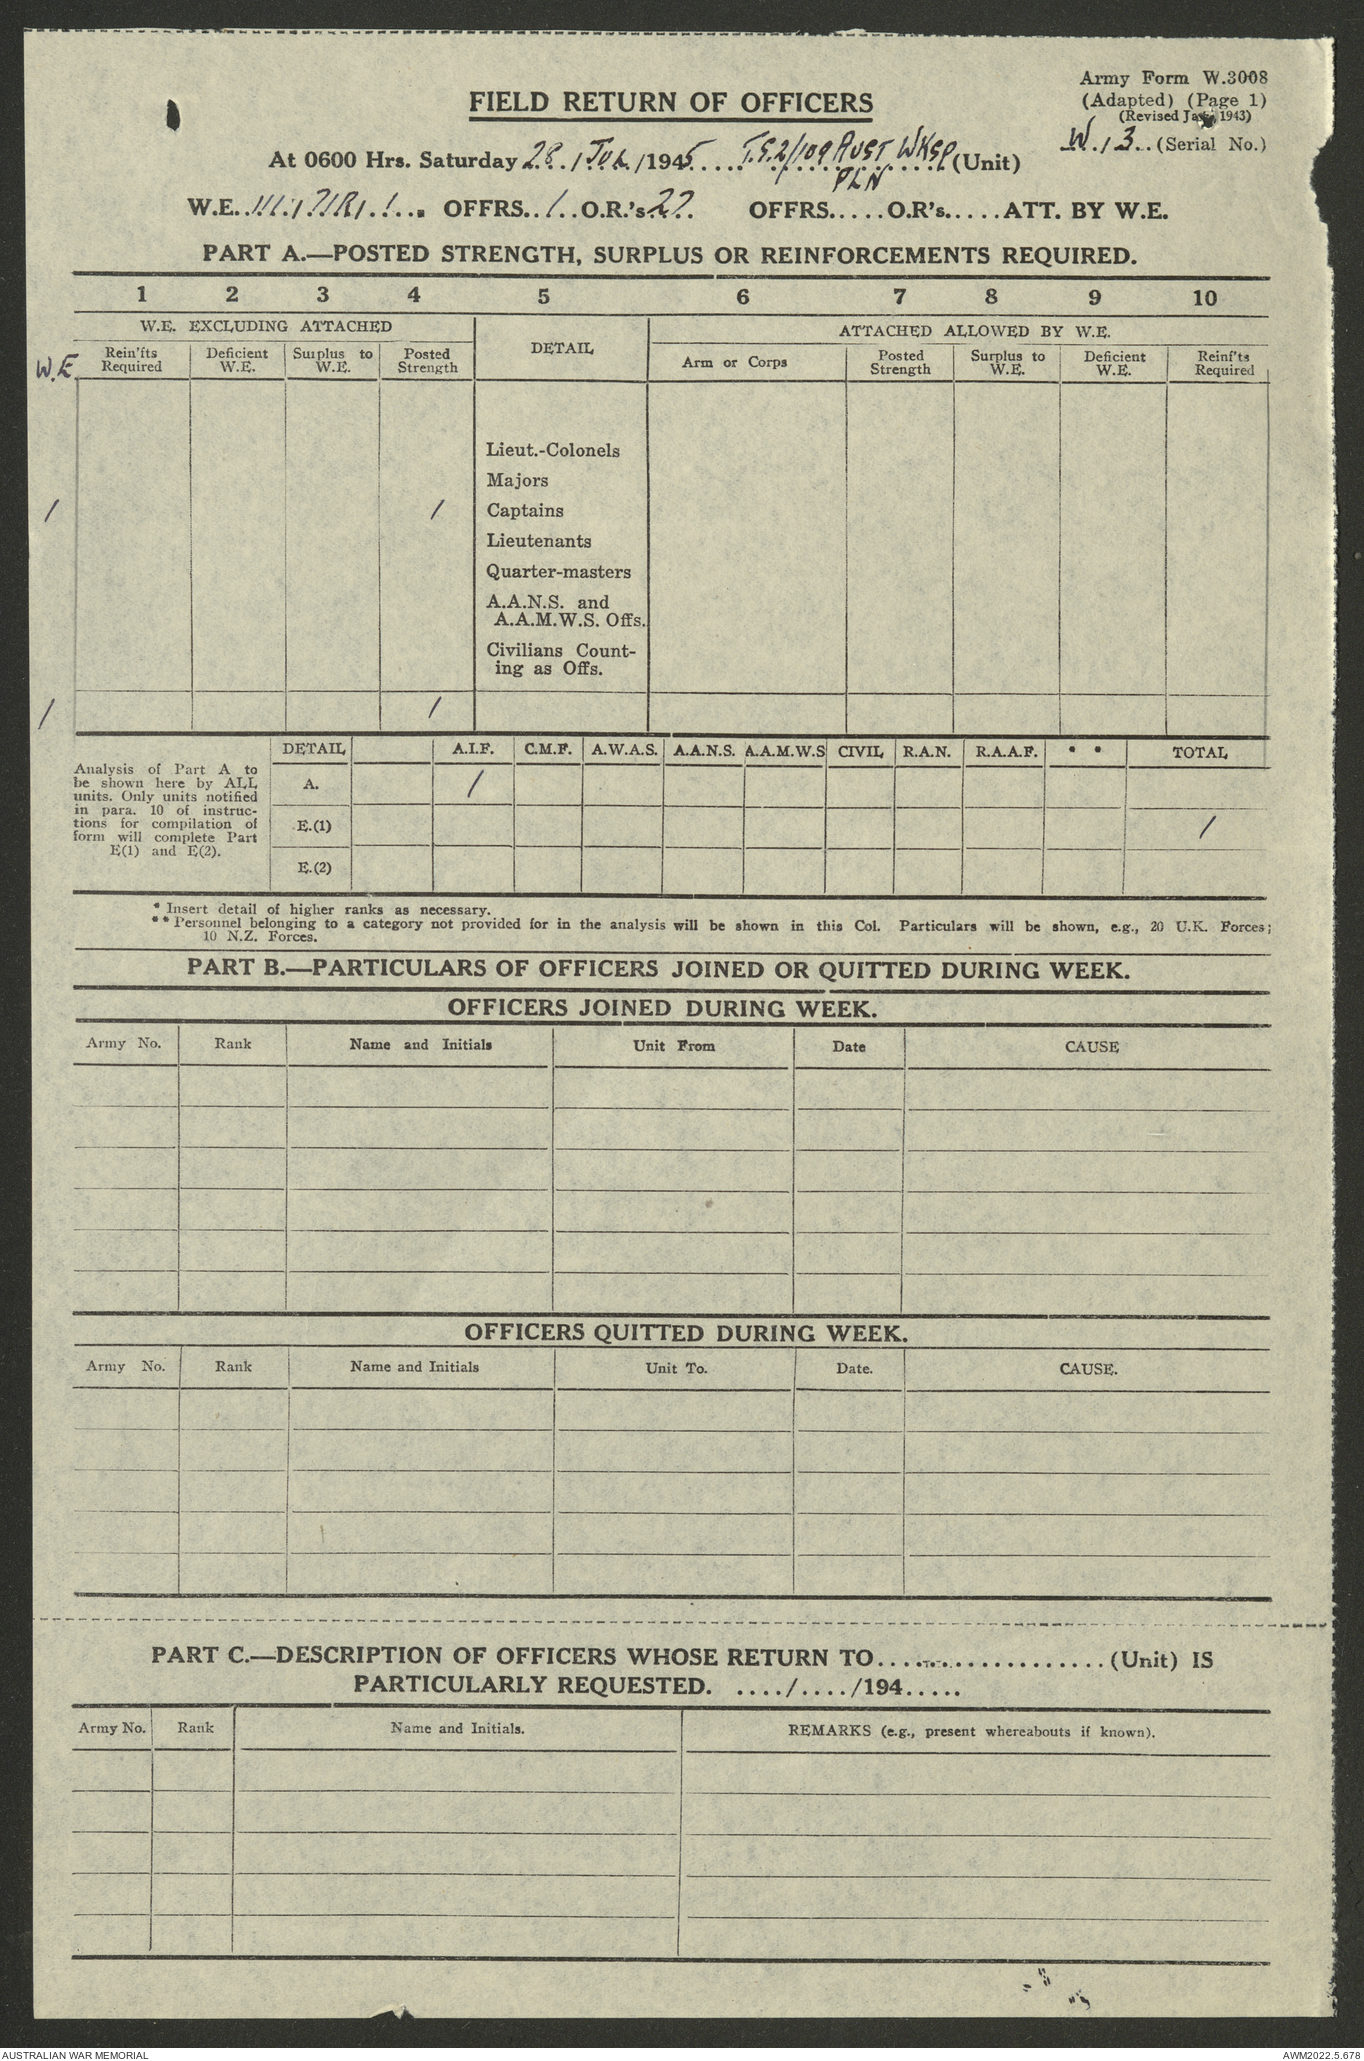 Army Form W.3008
(Adapted) (Page 1)
(Revised Jan., 1943)
FIELD RETURN OF OFFICERS
W.13.. (Serial No.)
At 0600 Hrs. Saturday 28./Jul./1945..... T.S.2/109 AUST WKSP (Unit)
PLN
W.E. OFFRS..1..O.R.'s 22. OFFRS.....O.R's.....ATT. BY W.E.
PART A.—POSTED STRENGTH, SURPLUS OR REINFORCEMENTS REQUIRED.
1 2 3 4 5 6 7 8 9 10
W.E. EXCLUDING ATTACHED DETAIL ATTACHED ALLOWED BY W.E.
W.E. Rein'fts Required Deficient W.E. Surplus to W.E. Posted Strength Arm or Corps Posted Strength Surplus to W.E. Deficient W.E. Reinf'ts Required
Lieut.-Colonels
Majors
1 1 Captains
Lieutenants
Quarter-masters
A.A.N.S. and
A.A.M.W.S. Offs.
Civilians Count-
ing as Offs.
1 1
DETAIL A.I.F. C.M.F. A.W.A.S. A.A.N.S. A.A.M.W.S CIVIL R.A.N. R.A.A.F. * * TOTAL
Analysis of Part A to
be shown here by ALL
units. Only units notified
in para. 10 of instruc-
tions for compilation of
form will complete Part
E(1) and E(2).
A. 1
E.(1) 1
E.(2)
* Insert detail of higher ranks as necessary.
** Personnel belonging to a category not provided for in the analysis will be shown in this Col. Particulars will be shown, e.g., 20 U.K. Forces;
10 N.Z. Forces.
PART B.—PARTICULARS OF OFFICERS JOINED OR QUITTED DURING WEEK.
OFFICERS JOINED DURING WEEK.
Army No. Rank Name and Initials Unit From Date CAUSE
OFFICERS QUITTED DURING WEEK.
Army No. Rank Name and Initials Unit To. Date. CAUSE.
PART C.—DESCRIPTION OF OFFICERS WHOSE RETURN TO....................(Unit) IS
PARTICULARLY REQUESTED. ..../..../194.....
Army No. Rank Name and Initials. REMARKS (e.g., present whereabouts if known).
AUSTRALIAN WAR MEMORIAL AWM2022.5.678